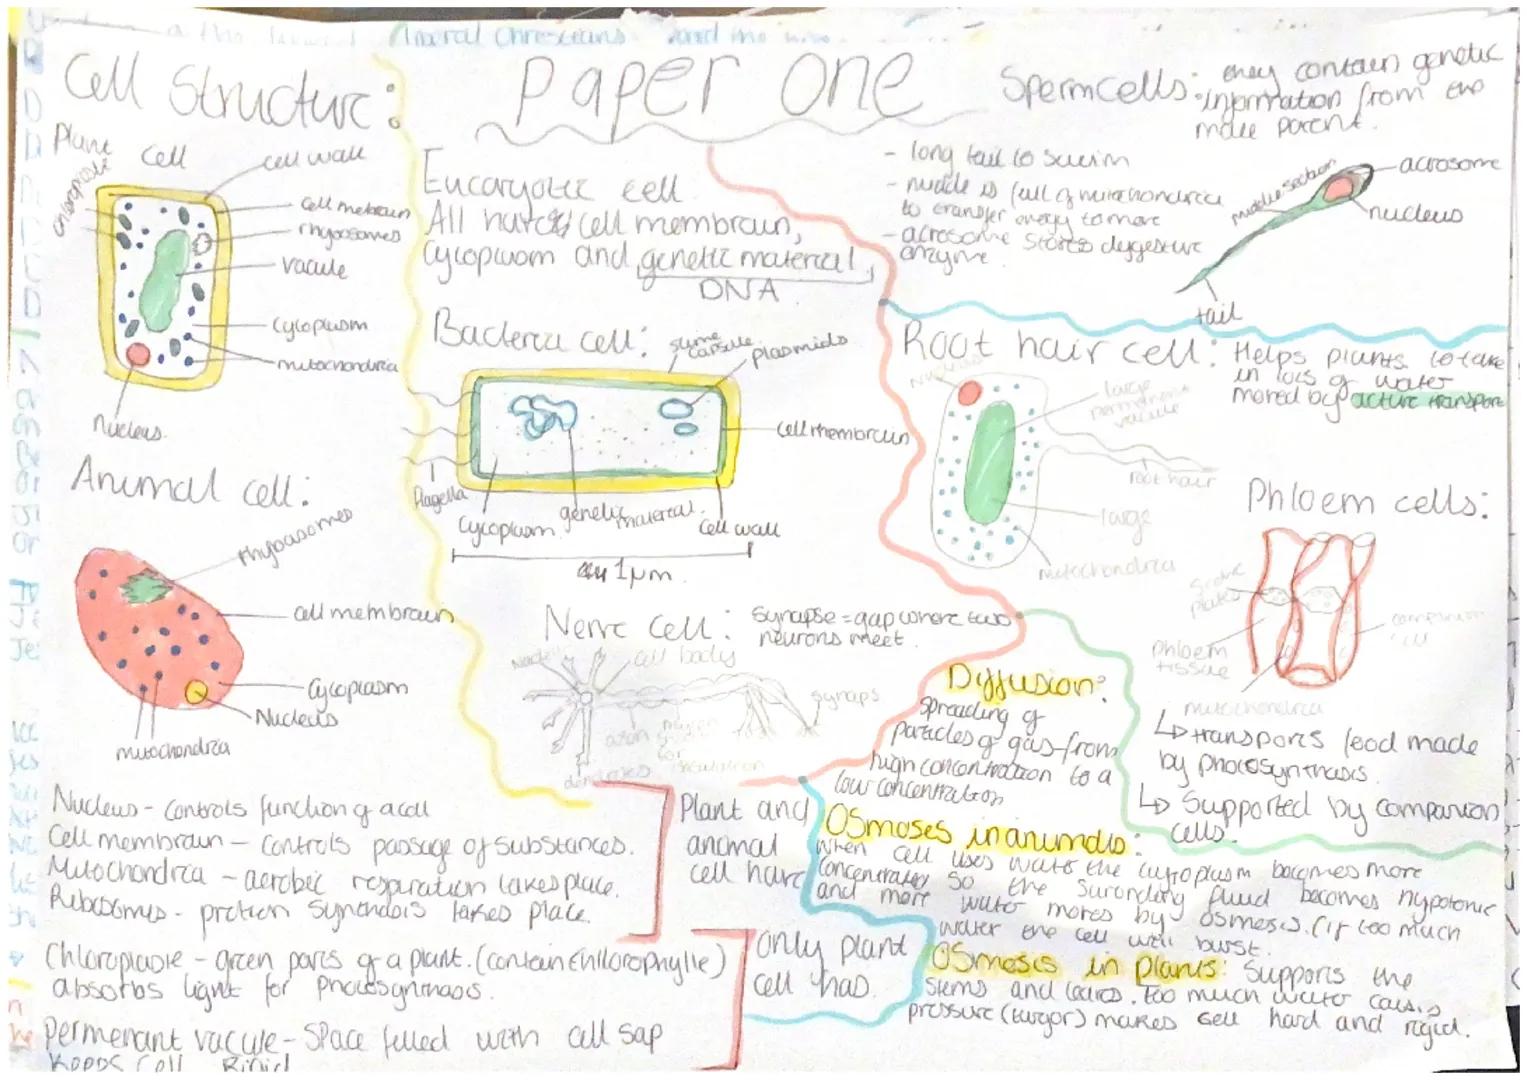 Paper one
Cell Structure:
Plant Cell
cell wall
chloroplast
cell mebraun
rhyposomes
vacule
Cytoplasm
mitochondria
nucleus
Animal cell:
rhyposomes
cell membraun
Cytoplasm
Nucleus
mitochondria
Nucleus - controls function of a cell
Cell membraun - controls passage of substances.
Mitochondria - aerobic respiration takes place.
Plant and
animal
cell have
Chloroplaste - green parts of a plant. (contain Chllorophylle)
absorbs light for photosynthasis.
Permenant vacule - Space filled with cell sap
Keeps Cell
only plant
cell has
Eucaryotic cell
All have cell membraun,
Cytoplasm and genetic material,
DNA
Bacteria cell:
slime
capsule
plasmids
cell membraun
flagella
Cytoplasm
genetic material.
Cell wall
1μm
Nerve cell: Synapse = gap where two
neurons meet.
cell body
synaps
axon
dendrites
Spermcells: they contain genetic
information from the
male parent.
- long tail to swim
- middle is full of mitochondria
to transfer energy to move
- acrosome stores digestive
enzyme.
middle section
acrosome
nucleus
tail
Root hair cell: Helps plants to take
in lots of water
moved by active transport
Nucleus
large
permenant
vacule
root hair
large
mitochondria
Phloem cells:
plate
phloem
tissue
companion
mitochondria
↳ transports food made
by photosynthasis.
↳ Supported by companion
cells.
Diffusion:
Spreading of
particles of gas from
high concentration to a
low concentration
Osmoses in animals:
When cell loses water the cytoplasm becomes more
concentrated so the surounding fluid becomes hypotonic
and more water moves by osmosis. (if too much
water the cell will burst.
Osmosis in Plants: Supports the
stems and leaves. too much water causes
pressure (turgor) makes cell hard and rigid.